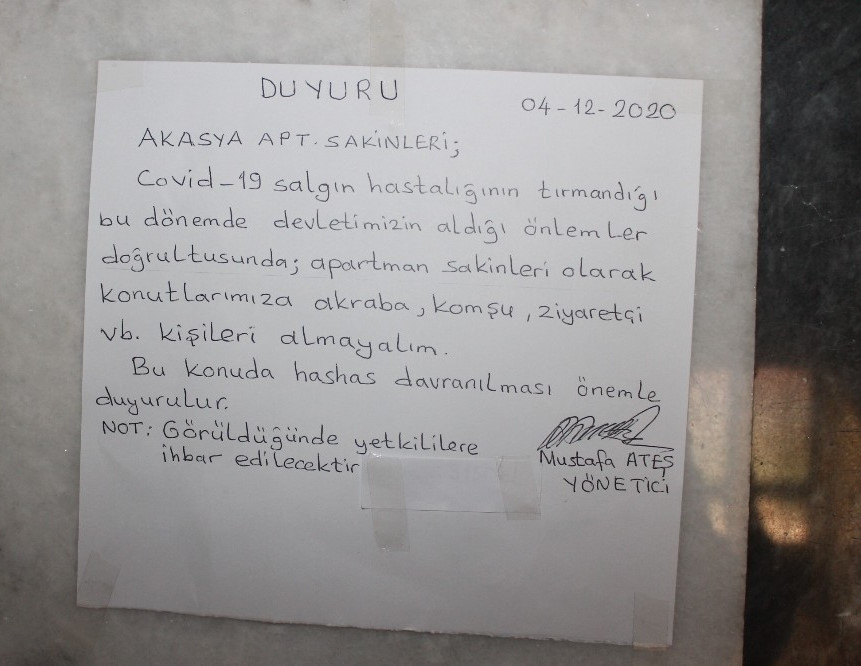 DUYURU
04-12-2020
AKASYA APT. SAKİNLERİ;
Covid-19 salgın hastalığının tırmandığı
bu dönemde devletimizin aldığı önlemler
doğrultusunda; apartman sakinleri olarak
konutlarımıza akraba, komşu, ziyaretçi
vb. kişileri almayalım.
Bu konuda hashas davranılması önemle
duyurulur.
NOT: Görüldüğünde yetkililere
ihbar edilecektir
Mustafa ATEŞ
YÖNETİCİ